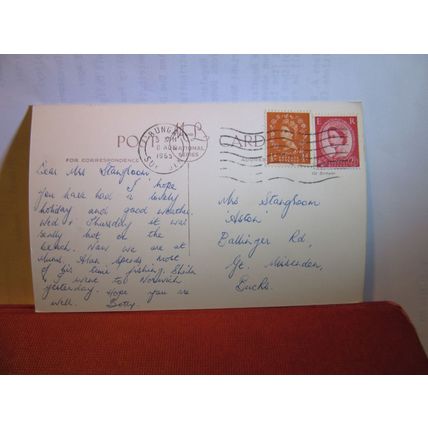 POST CARD
NATIONAL SERIES
FOR CORRESPONDENCE
BUNGAY
8 AUG
1965
E R
Gt Britain
Dear Mrs Stangroom
I hope
you have had a lovely
holiday and good weather.
Wed & Thursday it was
really hot on the
beach. Now we are at
Mums Alan spends most
of his time fishing. Sheila
& I went to Norwich
yesterday. Hope you are
well. Betty
Mrs Stangroom
'Aston'
Ballinger Rd,
Gt. Missenden,
Bucks.